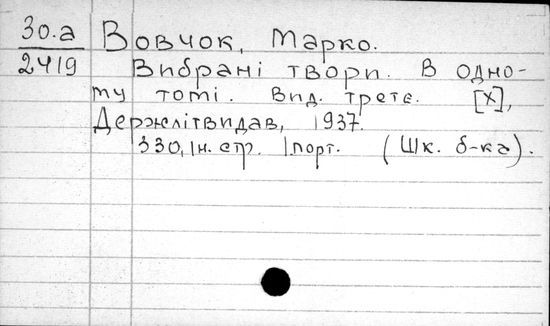 30.а Вовчок, Марко.
2419 Вибрані твори. В одно-
му томі. Вид. третє. [Х],
Держлітвидав, 1937.
330, Ін. стр. Іпорт. (Шк. б-ка).